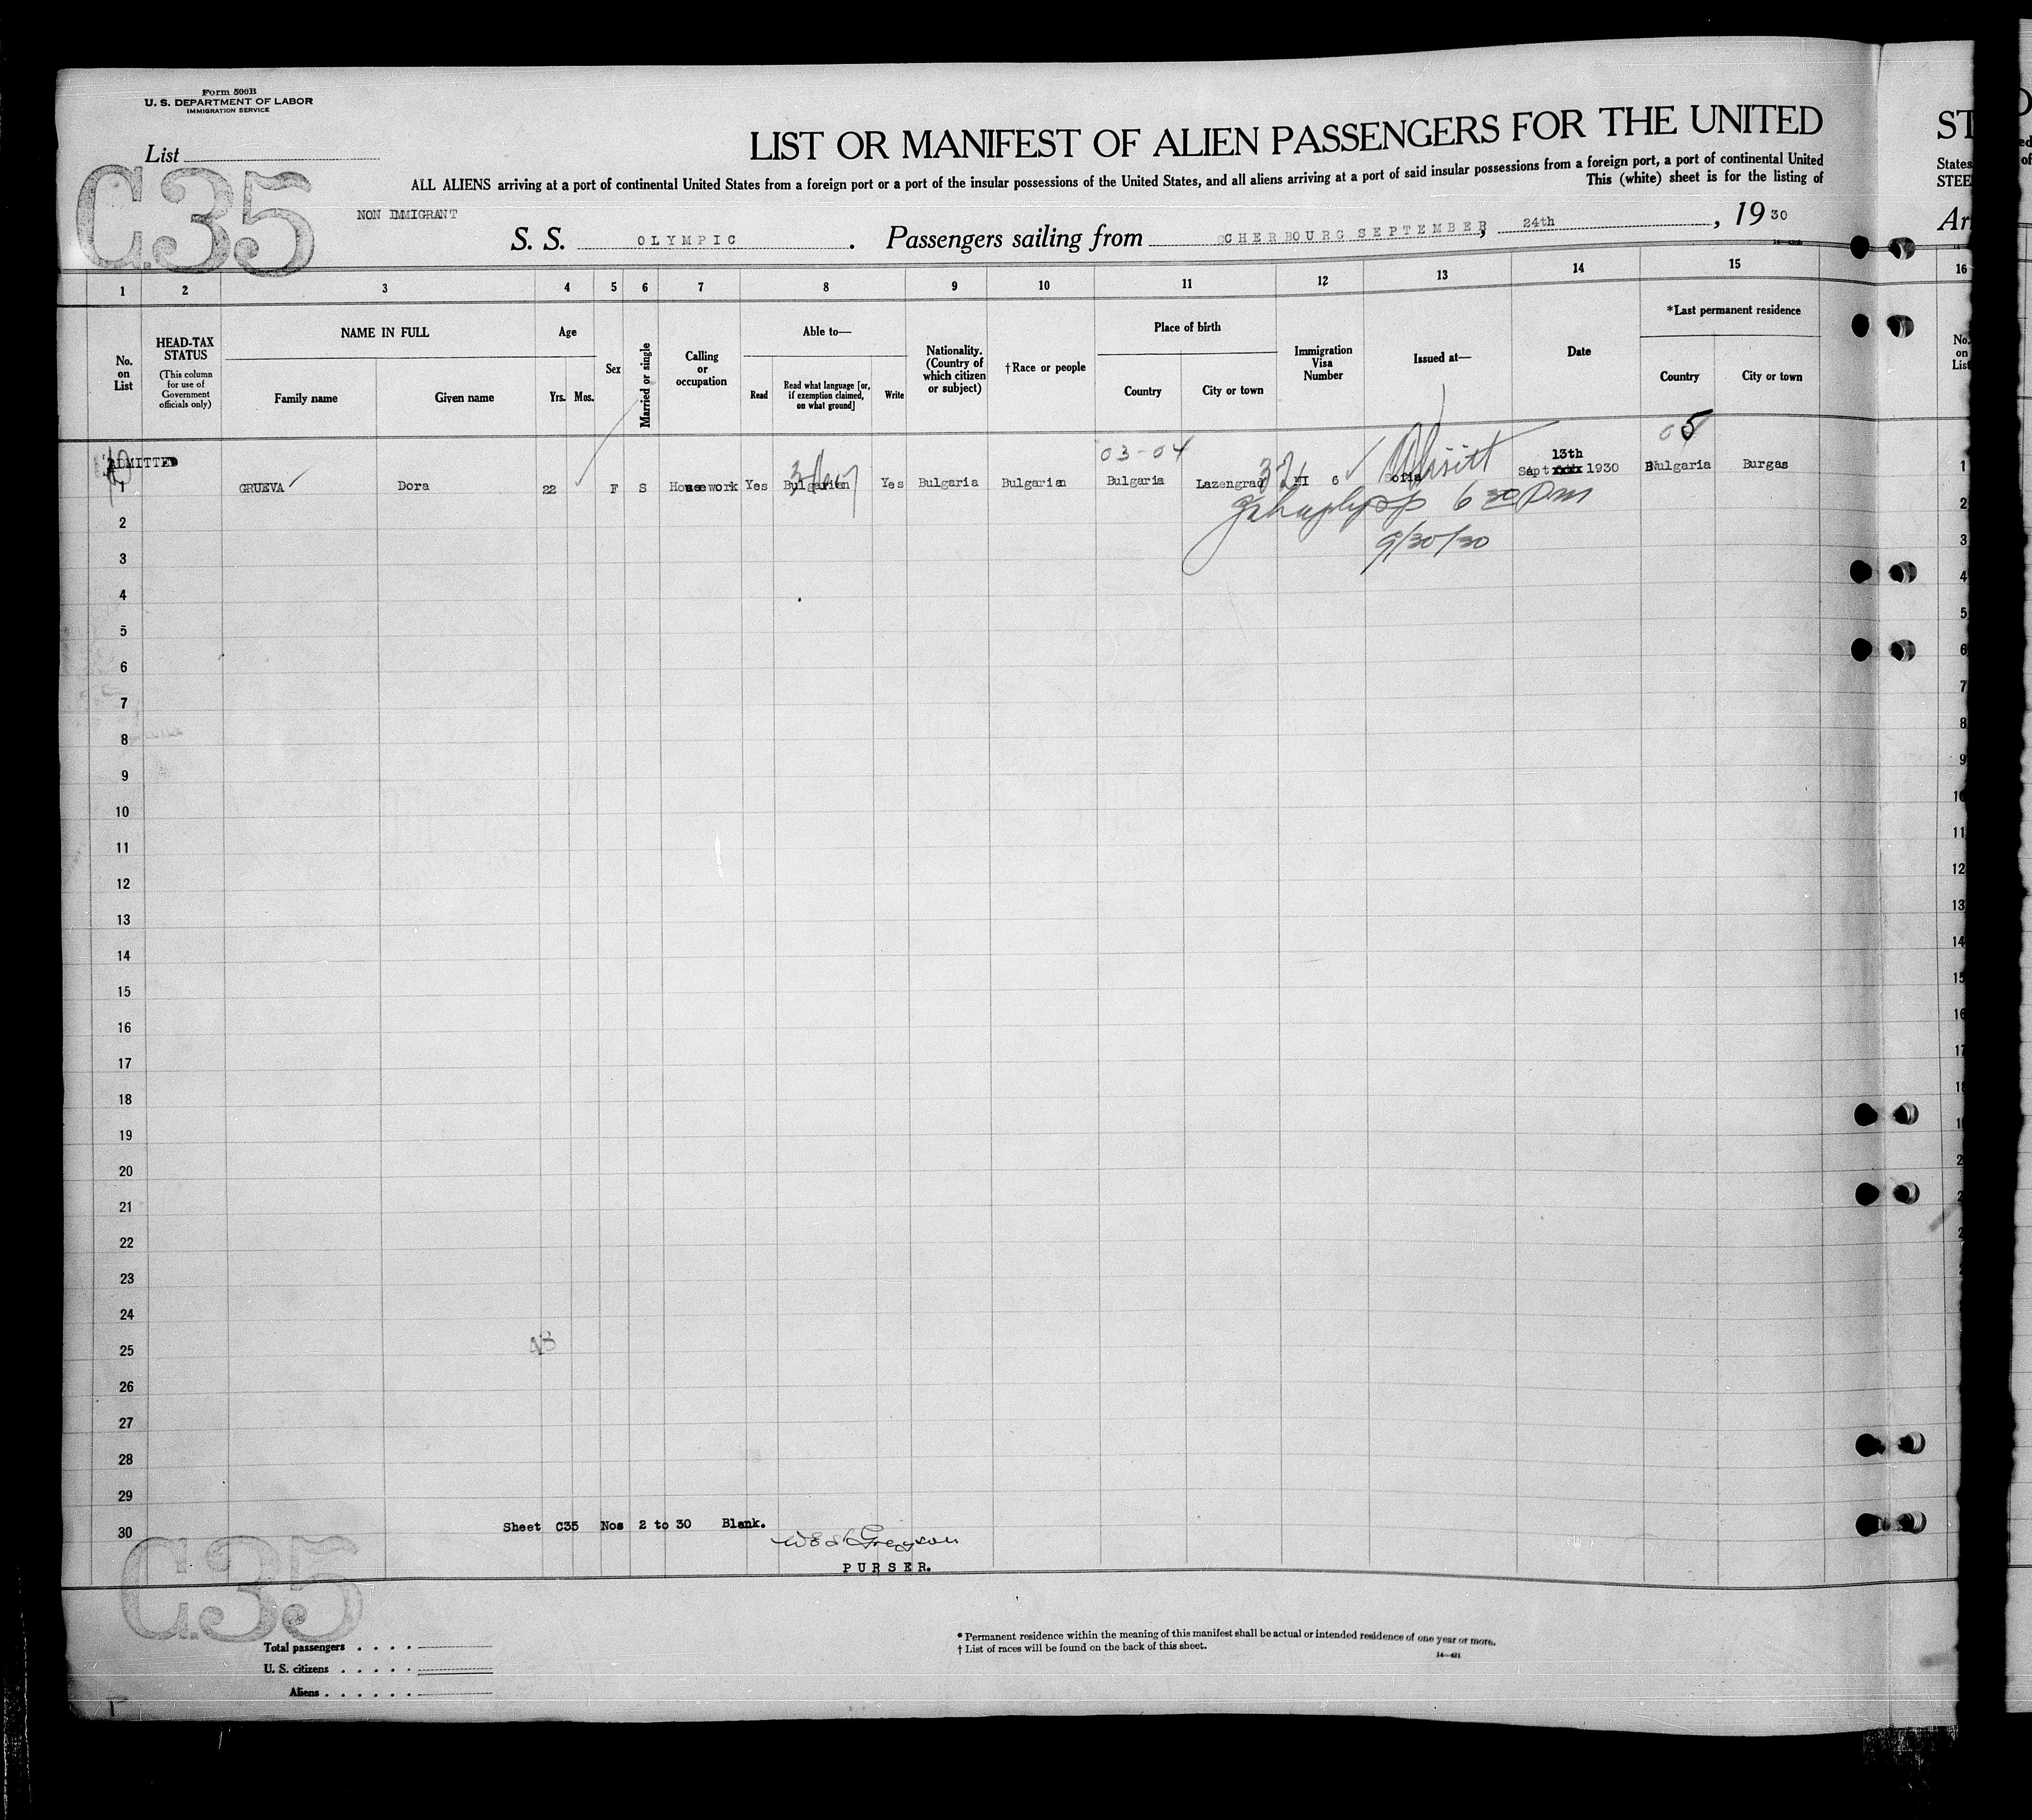 Form 500B
U. S. DEPARTMENT OF LABOR
IMMIGRATION SERVICE
List
C.35
LIST OR MANIFEST OF ALIEN PASSENGERS FOR THE UNITED
ALL ALIENS arriving at a port of continental United States from a foreign port or a port of the insular possessions of the United States, and all aliens arriving at a port of said insular possessions from a foreign port, a port of continental United
This (white) sheet is for the listing of
NON IMMIGRANT
S. S. OLYMPIC . Passengers sailing from CHERBOURG SEPTEMBER, 24th , 1930
ST
States
STEE
Ar
1 2 3 4 5 6 7 8 9 10 11 12 13 14 15 16
No. on List
HEAD-TAX STATUS (This column for use of Government officials only)
NAME IN FULL
Family name
Given name
Age
Yrs. Mos.
Sex
Married or single
Calling or occupation
Able to—
Read
Read what language [or, if exemption claimed, on what ground]
Write
Nationality. (Country of which citizen or subject)
†Race or people
Place of birth
Country
City or town
Immigration Visa Number
Issued at—
Date
*Last permanent residence
Country
City or town
No. on List
03-04
05
ADMITTED
13th
1 GRUEVA Dora 22 F S Housework Yes Bulgarian Yes Bulgaria Bulgarian Bulgaria Lazengrad 32 NI 6 Sofia Sept xxxx 1930 Bulgaria Burgas
6 30 Pm
9/30/30
2
3
4
5
6
7
8
9
10
11
12
13
14
15
16
17
18
19
20
21
22
23
24
25
26
27
28
29
30
Sheet C35 Nos 2 to 30 Blank.
PURSER.
C.35
Total passengers . . . .
U. S. citizens . . . . .
Aliens . . . . . .
* Permanent residence within the meaning of this manifest shall be actual or intended residence of one year or more.
† List of races will be found on the back of this sheet.
14—421